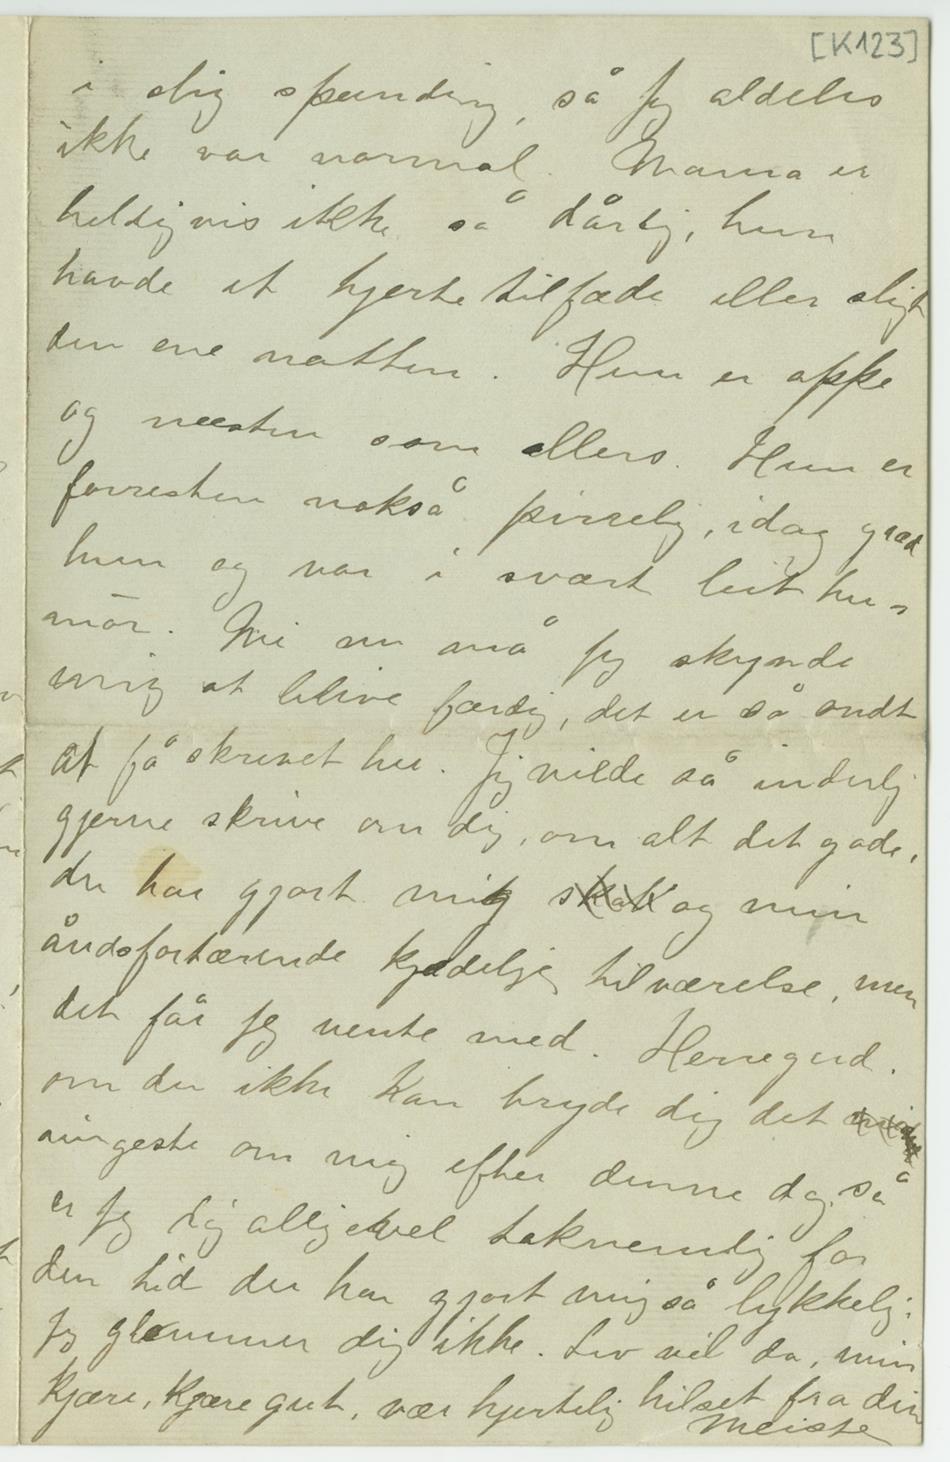 [K123]
i slig spænding, så jeg aldeles
ikke var normal. Mama er
heldigvis ikke så dårlig, hun
havde et hjertetilfælde eller sligt
den ene natten. Hun er oppe
og næsten som ellers. Hun er
forresten nokså pirrelig, idag græd
hun og var i svært leit hu-
mør. Nei nu må jeg skynde
mig at blive færdig, det er så ondt
at få skrevet her. Jeg vilde så inderlig
gjerne skrive om dig, om alt det gode,
du har gjort mig og min
åndsfortærende kjedelige tilværelse, men
det får jeg vente med. Herregud.
om du ikke kan bryde dig det
ringeste om mig efter denne dag, så
er jeg dig alligevel taknemlig for
den tid du har gjort mig så lykkelig.
Jeg glemmer dig ikke. Lev vel da, min
kjære, kjære gut, vær hjertelig hilset fra din
Meisse